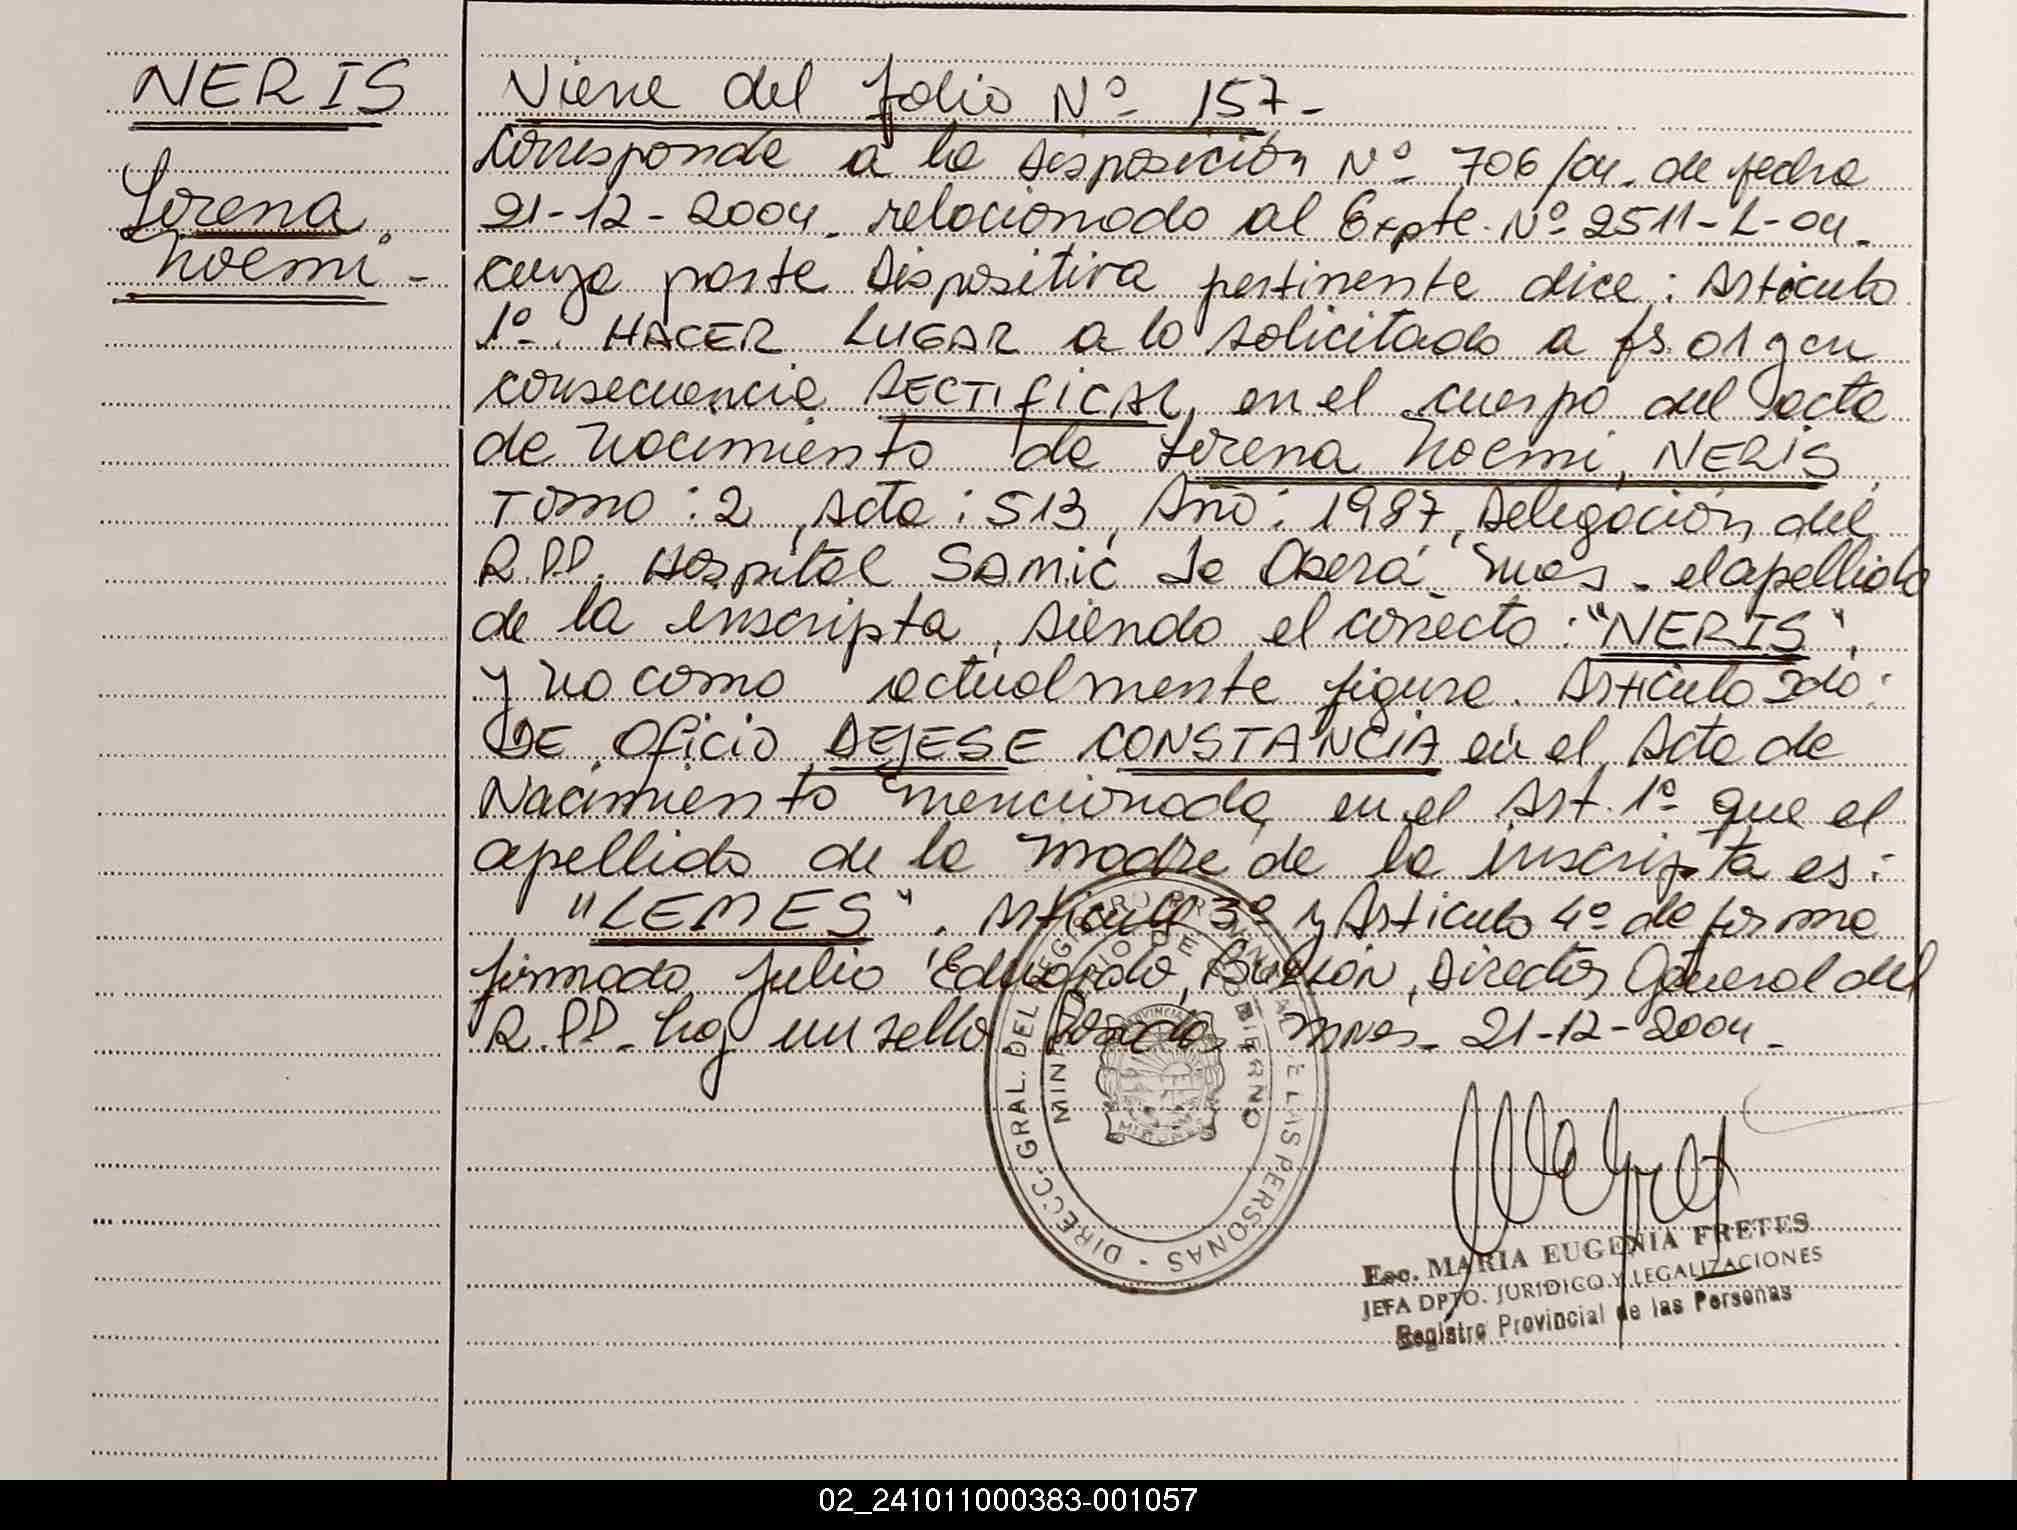 NERIS
Lorena
Noemi.-
Viene del folio Nº 157-
Corresponde a la Disposición Nº 706/04. de fecha
21-12-2004. relacionado al Expte. Nº 2511-L-04.
cuya parte Dispositiva pertinente dice: Artículo
1º. HACER LUGAR a lo solicitado a fs. 01 y en
consecuencia RECTIFICAR, en el cuerpo del acta
de Nacimiento de Lorena Noemi, NERIS,
Tomo: 2, Acta: 513, Año: 1987, Delegación del
R.PP. Hospital Samic de Oberá Mnes - el apellido
de la inscripta, siendo el correcto: "NERIS",
y no como actualmente figura. Artículo 2do:
DE Oficio DEJESE CONSTANCIA en el Acta de
Nacimiento mencionada en el Art. 1º que el
apellido de la madre de la inscripta es:
"LEMES". Artículo 3º y Artículo 4º de forma
firmado Julio Eduardo, Director General del
R.PP. hay un sello Posadas Mnes. 21-12-2004.
DIRECC. GRAL. DEL REGISTRO PROVINCIAL DE LAS PERSONAS -
MINISTERIO DE GOBIERNO
PROVINCIA
MISIONES
Esc. MARIA EUGENIA FRETES
JEFA DPTO. JURIDICO Y LEGALIZACIONES
Registro Provincial de las Personas
02_241011000383-001057